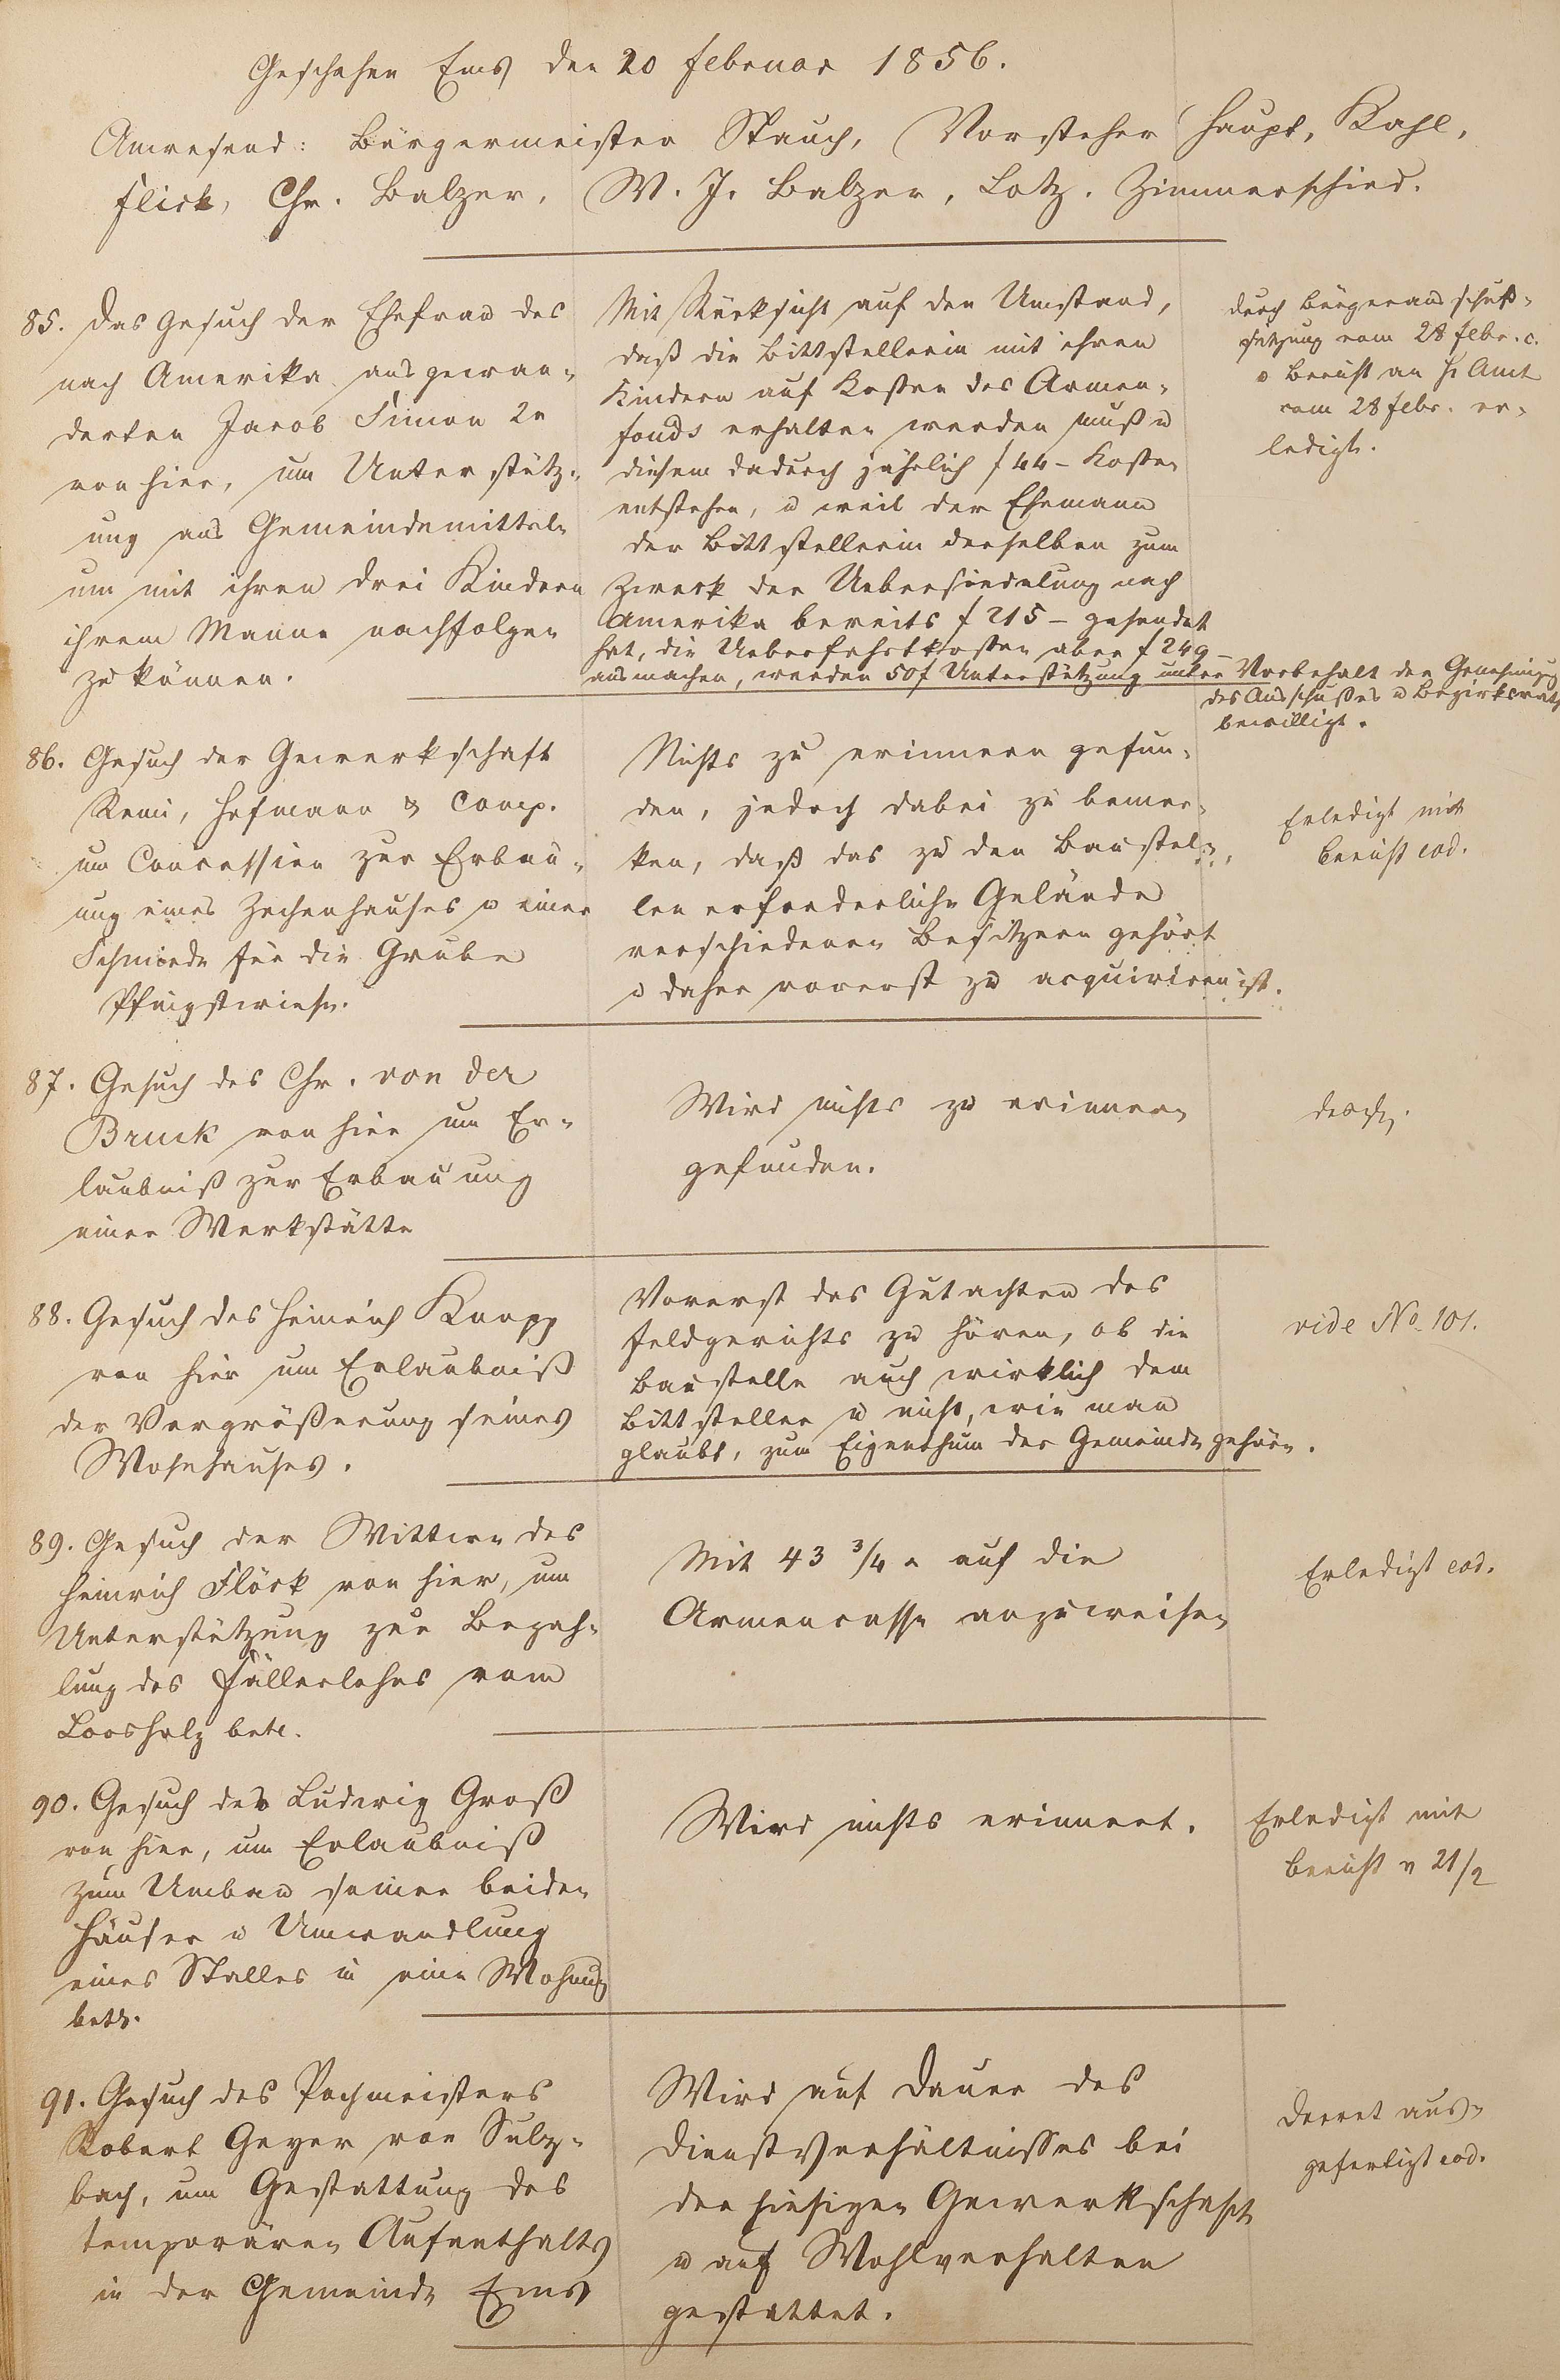 Geschehen Ems den 20 Februar 1856.
Anwesend: Bürgermeister Stauch, Vorsteher Haupt, Kahl,
Flick, Chr. Balzer, W. J. Balzer, Lotz, Zimmerschied.
85. Das Gesuch der Ehefrau des
nach Amerika ausgewan-
derten Jacob Simon 2r
von hier, um Unterstütz-
ung aus Gemeindemitteln
um mit ihren drei Kindern
ihrem Manne nachfolgen
zu können.
Mit Rücksicht auf den Umstand,
daß die Bittstellerin mit ihren
Kindern auf Kosten des Armen-
fonds erhalten werden muß u
diesem dadurch jährlich f 44 – Kosten
entstehen, u weil der Ehemann
der Bittstellerin derselben zum
Zweck der Uebersiedelung nach
Amerika bereits f 215 – gesendet
hat, die Ueberfahrtkosten aber f 249 –
ausmachen, werden 50f Unterstützung unter Vorbehalt der Genehmigg
des Ausschußes u Bezirksraths
bewilligt.
durch Bürgerausschuß-
sitzung vom 28 Febr. c.
u Bericht an H. Amt
vom 28 Febr. er-
ledigt.
86. Gesuch der Gewerkschaft
Remi, Hofmann & Comp.
um Concession zur Erbau-
ung eines Zechenhauses u einer
Schmiede für die Grube
Pfingstwiese.
Nichts zu erinnern gefun-
den, jedoch dabei zu bemer-
ken, daß das zu den Baustel-
len erforderliche Gelände
verschiedenen Besitzern gehört
u daher vorerst zu acquiriren ist.
Erledigt mit
Bericht eod.
87. Gesuch des Chr. von der
Bruck von hier um Er-
laubniß zur Erbauung
einer Werkstätte
Wird nichts zu erinnern
gefunden.
desgl.
88. Gesuch des Heinrich Knopp
von hier um Erlaubniß
der Vergrößerung seines
Wohnhauses.
Vorerst das Gutachten des
Feldgerichts zu hören, ob die
Baustelle auch wirklich dem
Bittsteller u nicht, wie man
glaubt, zum Eigenthum der Gemeinde gehöre.
vide No. 101.
89. Gesuch der Wittwe des
Heinrich Flöck von hier, um
Unterstützung zur Bezah-
lung des Fällerlohns vom
Loosholz betr.
Mit 43 3/4 x auf die
Armencasse anzuweisen
Erledigt eod.
90. Gesuch des Ludwig Groß
von hier, um Erlaubniß
zum Umbau seiner beiden
Häuser u Umwandlung
eines Stalles in eine Wohnung
betr.
Wird nichts erinnert.
Erledigt mit
Bericht v 21/2
91. Gesuch des Pochmeisters
Robert Geyer von Sulz-
bach, um Gestattung des
temporären Aufenthalts
in der Gemeinde Ems
Wird auf Dauer des
Dienstverhältnisses bei
der hiesigen Gewerkschaft
u auf Wohlverhalten
gestattet.
Decret aus-
gefertigt eod.